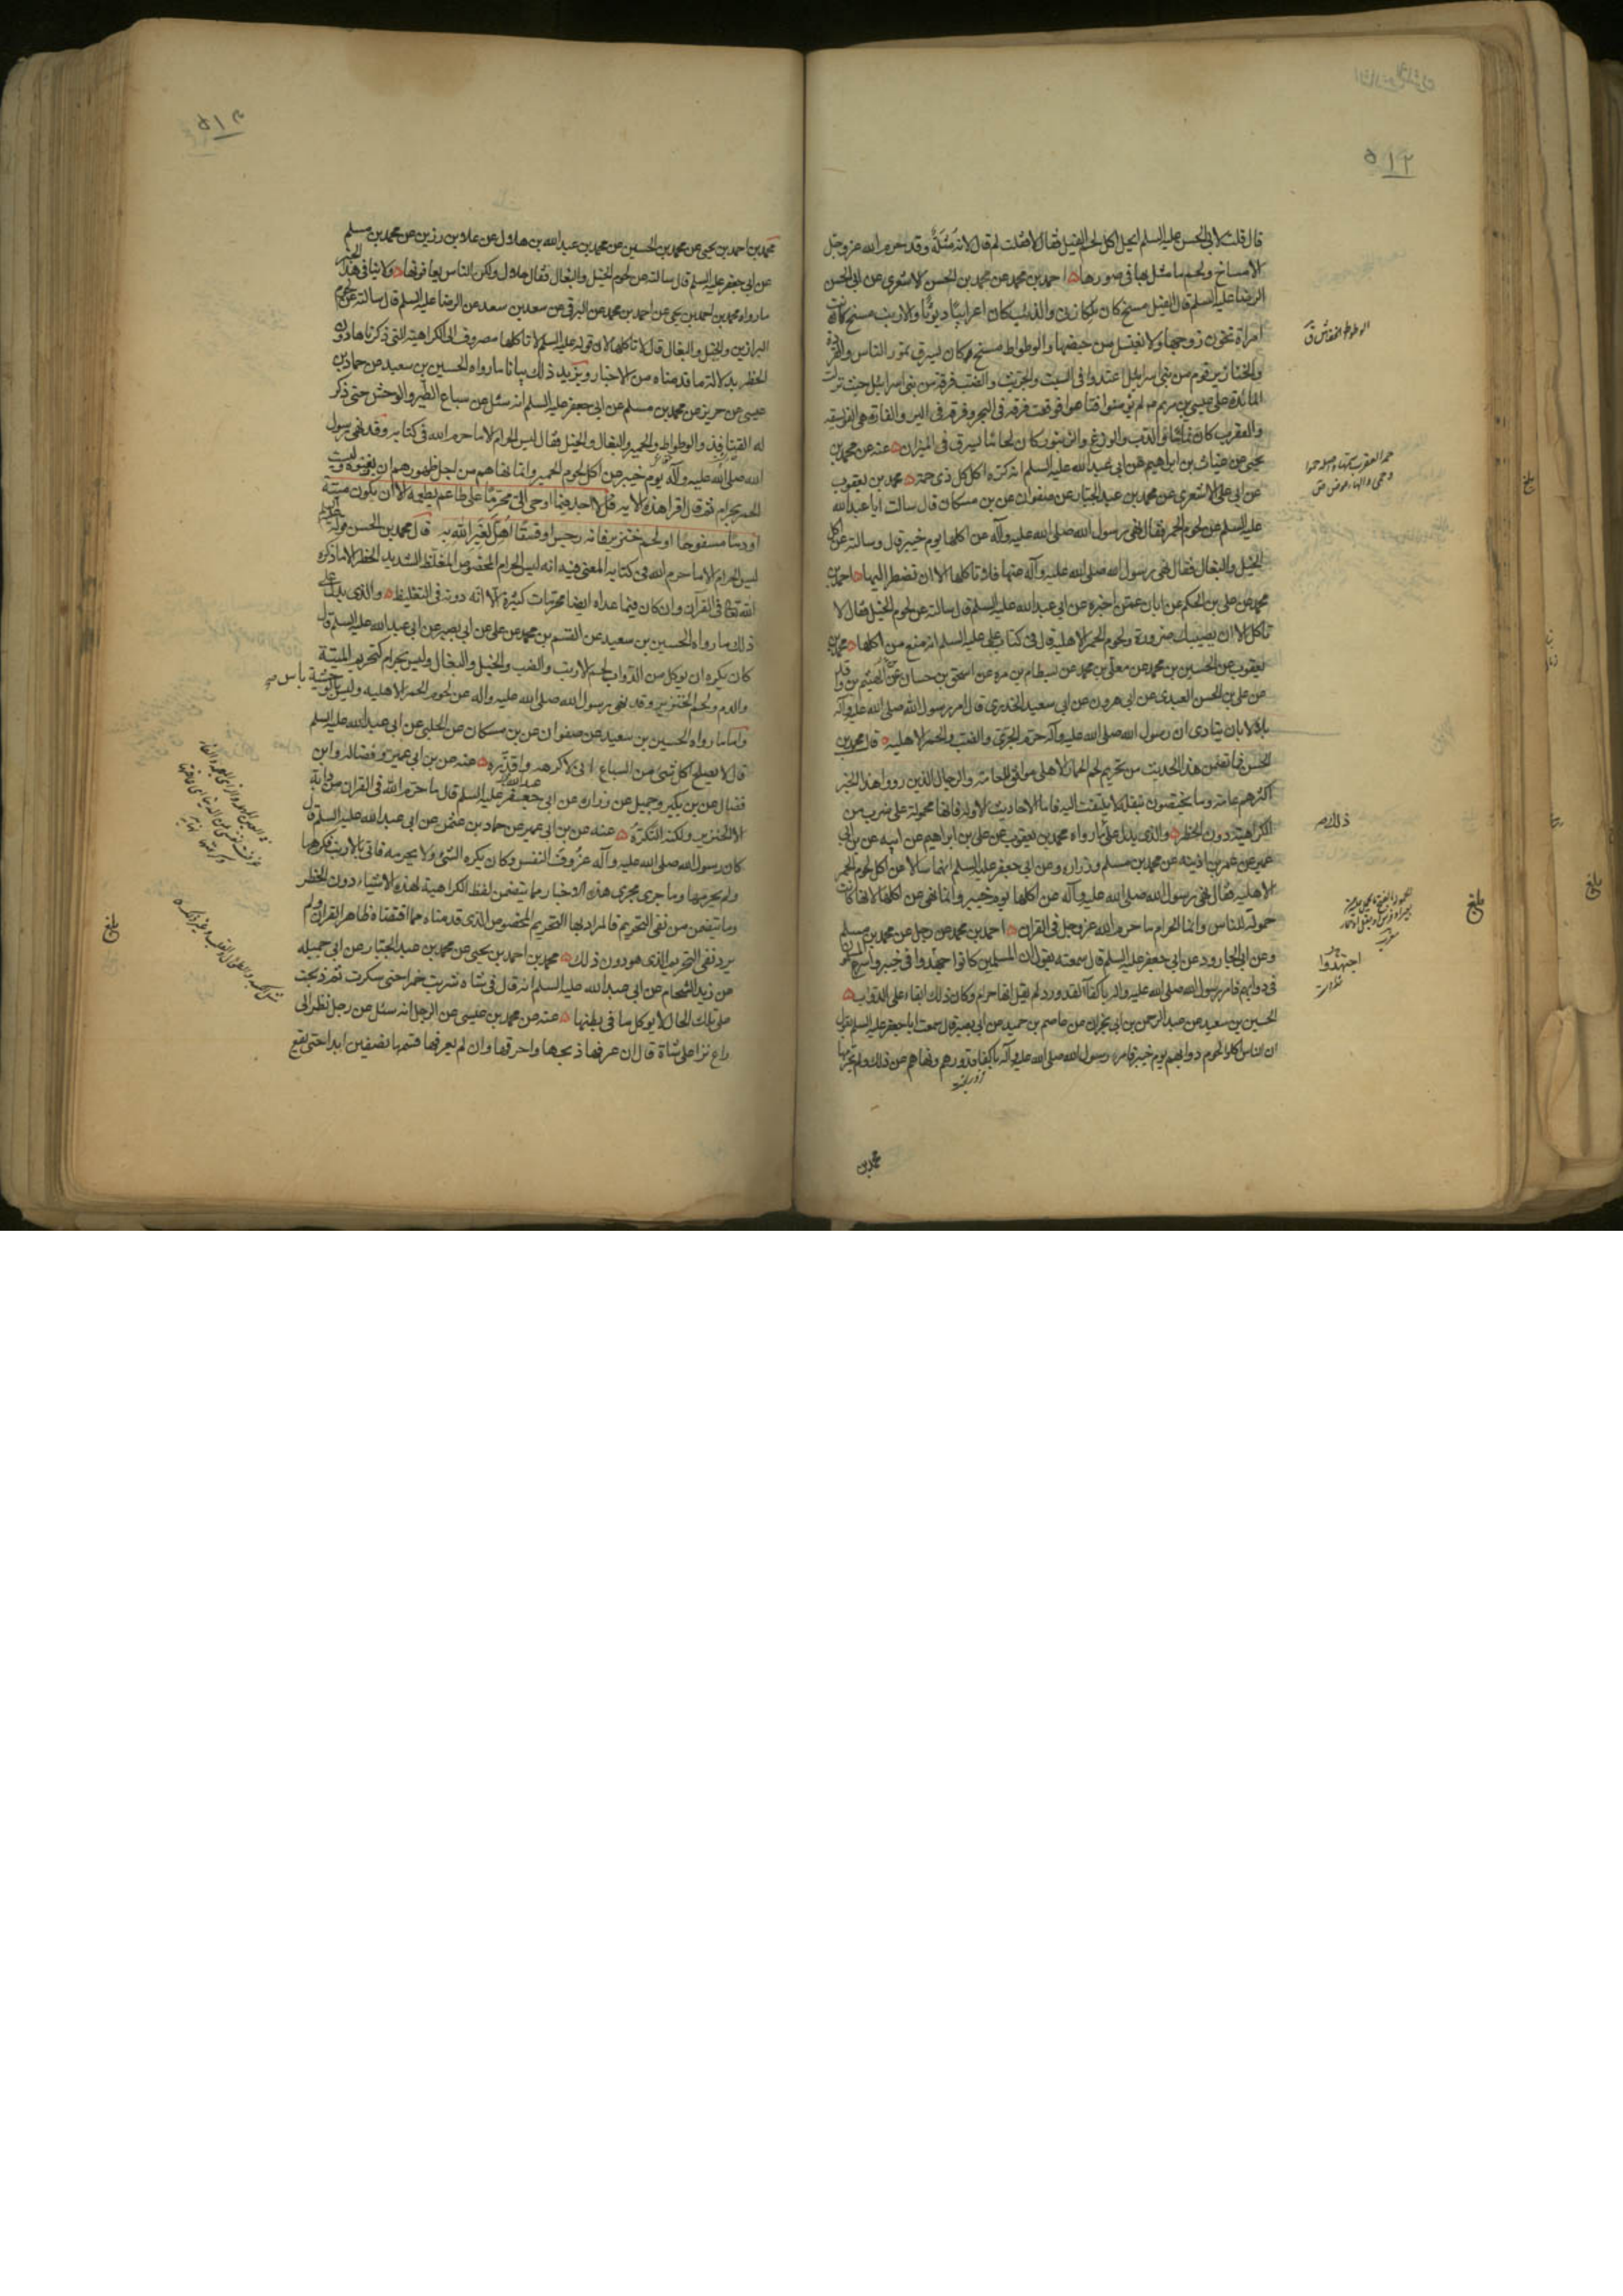 ٢١٥
قال قلت لابي الحسن عليه السلم ايحل اكل لحم الفيل فقال لا فقلت لم قال لانه مُثْلَة وقد حرم الله عز وجل
الامساخ ولحم ما مثل بها في صورها احمد بن محمد عن محمد بن الحسن الاشعري عن ابي الحسن
الرضا عليه السلم قال الفيل مسخ كان ملكا زناء والذئب كان اعرابيا ديوثا والارنب مسخ كانت
امراة تخون زوجها ولا تغتسل من حيضها والوطواط مسخ كان يسرق تمور الناس والقردة
والخنازير قوم من بني اسرائيل اعتدوا في السبت والجريث والضب فرقة من بني اسرائيل حيث نزلت
المائدة على عيسى بن مريم لم يؤمنوا فتاهوا فوقعت فرقة في البحر وفرقة في البر والفارة هي الفويسقة
والعقرب كان نماما والدب والوزغ والزنبور كان لحاما يسرق في الميزان عنه عن محمد بن
يحيى عن غياث بن ابراهيم عن ابي عبد الله عليه السلم انه كره اكل كل ذي حمة محمد بن يعقوب
عن ابي علي الاشعري عن محمد بن عبد الجبار عن صفوان عن بن مسكان قال سالت ابا عبد الله
عليه السلم عن لحوم الحمر فقال نهى رسول الله صلى الله عليه وآله عن اكلها يوم خيبر قال وسالته عن اكل
الخيل والبغال فقال نهى رسول الله صلى الله عليه وآله عنها فلا تاكلها الا ان تضطر اليها احمد بن
محمد عن علي بن الحكم عن ابان عمن اخبره عن ابي عبد الله عليه السلم قال سالته عن لحوم الخيل فقال لا
تاكل الا ان يصيبك ضرورة ولحوم الحمر الاهلية قال في كتاب علي عليه السلم انه منع من اكلها محمد بن
يعقوب عن الحسين بن محمد عن معلى بن محمد عن بسطام بن مره عن اسحق بن حسان عن الهيثم بن واقد
عن علي بن الحسن العبدي عن ابي هرون عن ابي سعيد الخدري قال امر رسول الله صلى الله عليه وآله
بلالا بان ينادى ان رسول الله صلى الله عليه وآله حرم الجري والضب والحمر الاهلية قال محمد بن
الحسن ما تضمن هذا الحديث من تحريم لحم الحمار الاهلي موافق للعامة والرجال الذين رووا هذا الخبر
اكثرهم عامة وما يختصون بنقله لا يلتفت اليه فاما الاحاديث الاولة فانها محمولة على ضرب من
الكراهية دون الحظر والذي يدل على ما رواه محمد بن يعقوب عن علي بن ابراهيم عن ابيه عن بن ابي
عمير عن عمر بن اذينة عن محمد بن مسلم وزراره عن ابي جعفر عليه السلم انهما سالاه عن اكل لحوم الحمر
الاهلية فقال نهى رسول الله صلى الله عليه وآله عن اكلها يوم خيبر وانما نهى عن اكلها لانها كانت
حمولة للناس وانما الحرام ما حرم الله عز وجل في القران احمد بن محمد عن رجل عن محمد بن مسلم
وعن ابي الجارود عن ابي جعفر عليه السلم قال سمعته يقول ان المسلمين كانوا جهدوا في خيبر واسرع المسلمون
في دوابهم فامر رسول الله صلى الله عليه وآله باكفاء القدور ولم يقل انها حرام وكان ذلك ابقاء على الدواب
الحسين بن سعيد عن عبد الرحمن بن ابي نجران عن عاصم بن حميد عن ابي بصير قال سمعت ابا جعفر عليه السلم يقول
ان الناس اكلوا لحوم دوابهم يوم خيبر فامر رسول الله صلى الله عليه وآله باكفاء قدورهم ونهاهم عن ذلك ولم يحرمها
محمد بن
الوطواط الخفاش ق
ذلك صح
اجتهدوا
بلغ
محمد بن احمد بن يحيى عن محمد بن الحسين عن محمد بن عبد الله بن هلال عن علا بن رزين عن محمد بن مسلم
عن ابي جعفر عليه السلم قال سالته عن لحوم الخيل والبغال فقال حلال ولكن الناس يعافونها ولا ينافي هذا الخبر
ما رواه محمد بن احمد بن يحيى عن احمد بن محمد عن البرقي عن سعد بن سعد عن الرضا عليه السلم قال سالته عن لحوم
البراذين والخيل والبغال قال لا تاكلها لان قوله عليه السلم لا تاكلها مصروف الى الكراهية التي ذكرناها دون
الحظر بدلالة ما قدمناه من الاخبار ويزيد ذلك بيانا ما رواه الحسين بن سعيد عن حماد بن
عيسى عن حريز عن محمد بن مسلم عن ابي جعفر عليه السلم انه سئل عن سباع الطير والوحش حتى ذكر
له القنافذ والوطواط والحمير والبغال والخيل فقال ليس الحرام الا ما حرم الله في كتابه وقد نهى رسول
الله صلى الله عليه وآله يوم خيبر عن اكل لحوم الحمير وانما نهاهم من اجل ظهورهم ان يفنوه وليست
الحمر بحرام ثم قال اقرا هذه الاية قل لا اجد فيما اوحي الي محرما على طاعم يطعمه الا ان يكون ميتة
او دما مسفوحا او لحم خنزير فانه رجس او فسقا اهل لغير الله به قال محمد بن الحسن قوله
ليس الحرام الا ما حرم الله في كتابه المعنى فيه انه ليس الحرام المخصوص المغلظ الشديد الحظر الا ما ذكره
الله تع في القرآن وان كان فيما عداه ايضا محرمات كثيرة الا انه دونه في التغليظ والذي يدل على
ذلك ما رواه الحسين بن سعيد عن القسم بن محمد عن علي عن ابي بصير عن ابي عبد الله عليه السلم قال
كان يكره ان يوكل من الدواب لحم الارنب والضب والخيل والبغال وليس بحرام كتحريم الميتة
والدم ولحم الخنزير وقد نهى رسول الله صلى الله عليه وآله عن لحوم الحمر الاهلية وليس بالوحشية باس
واما ما رواه الحسين بن سعيد عن صفوان عن بن مسكان عن الحلبي عن ابي عبد الله عليه السلم
قال لا يصلح اكل شي من السباع اني لاكرهه واقذره عنه عن بن ابي عمير وفضاله وابن
فضال عن بن بكير وجميل عن زراره عن ابي جعفر عليه السلم قال ما حرم الله في القران من دابة
الا الخنزير ولكنه النكرة عنه عن بن ابي عمير عن حماد بن عثمن عن ابي عبد الله عليه السلم قال
كان رسول الله صلى الله عليه وآله عزوف النفس وكان يكره الشئ ولا يحرمه فاتي بالارنب فكرهها
ولم يحرمها وما جرى مجرى هذه الاخبار مما يتضمن لفظ الكراهية لهذه الاشياء دون الحظر
وما تيضمن من نفي التحريم فالمراد بها التحريم المخصوص الذي قدمناه مما اقتضاه ظاهر القران ولم
يرد نفي التحريم الذي هو دون ذلك محمد بن احمد بن يحيى عن محمد بن عبد الجبار عن ابي جميله
عن زيد الشحام عن ابي عبد الله عليه السلم انه قال في شاة شربت خمرا حتى سكرت ثم ذبحت
على تلك الحال لا يوكل ما في بطنها عنه عن محمد بن عيسى عن الرجل انه سئل عن رجل نظر الى
راع نزا على شاة قال ان عرفها ذبحها واحرقها وان لم يعرفها قسمها نصفين ابدا حتى يقع
بلغ